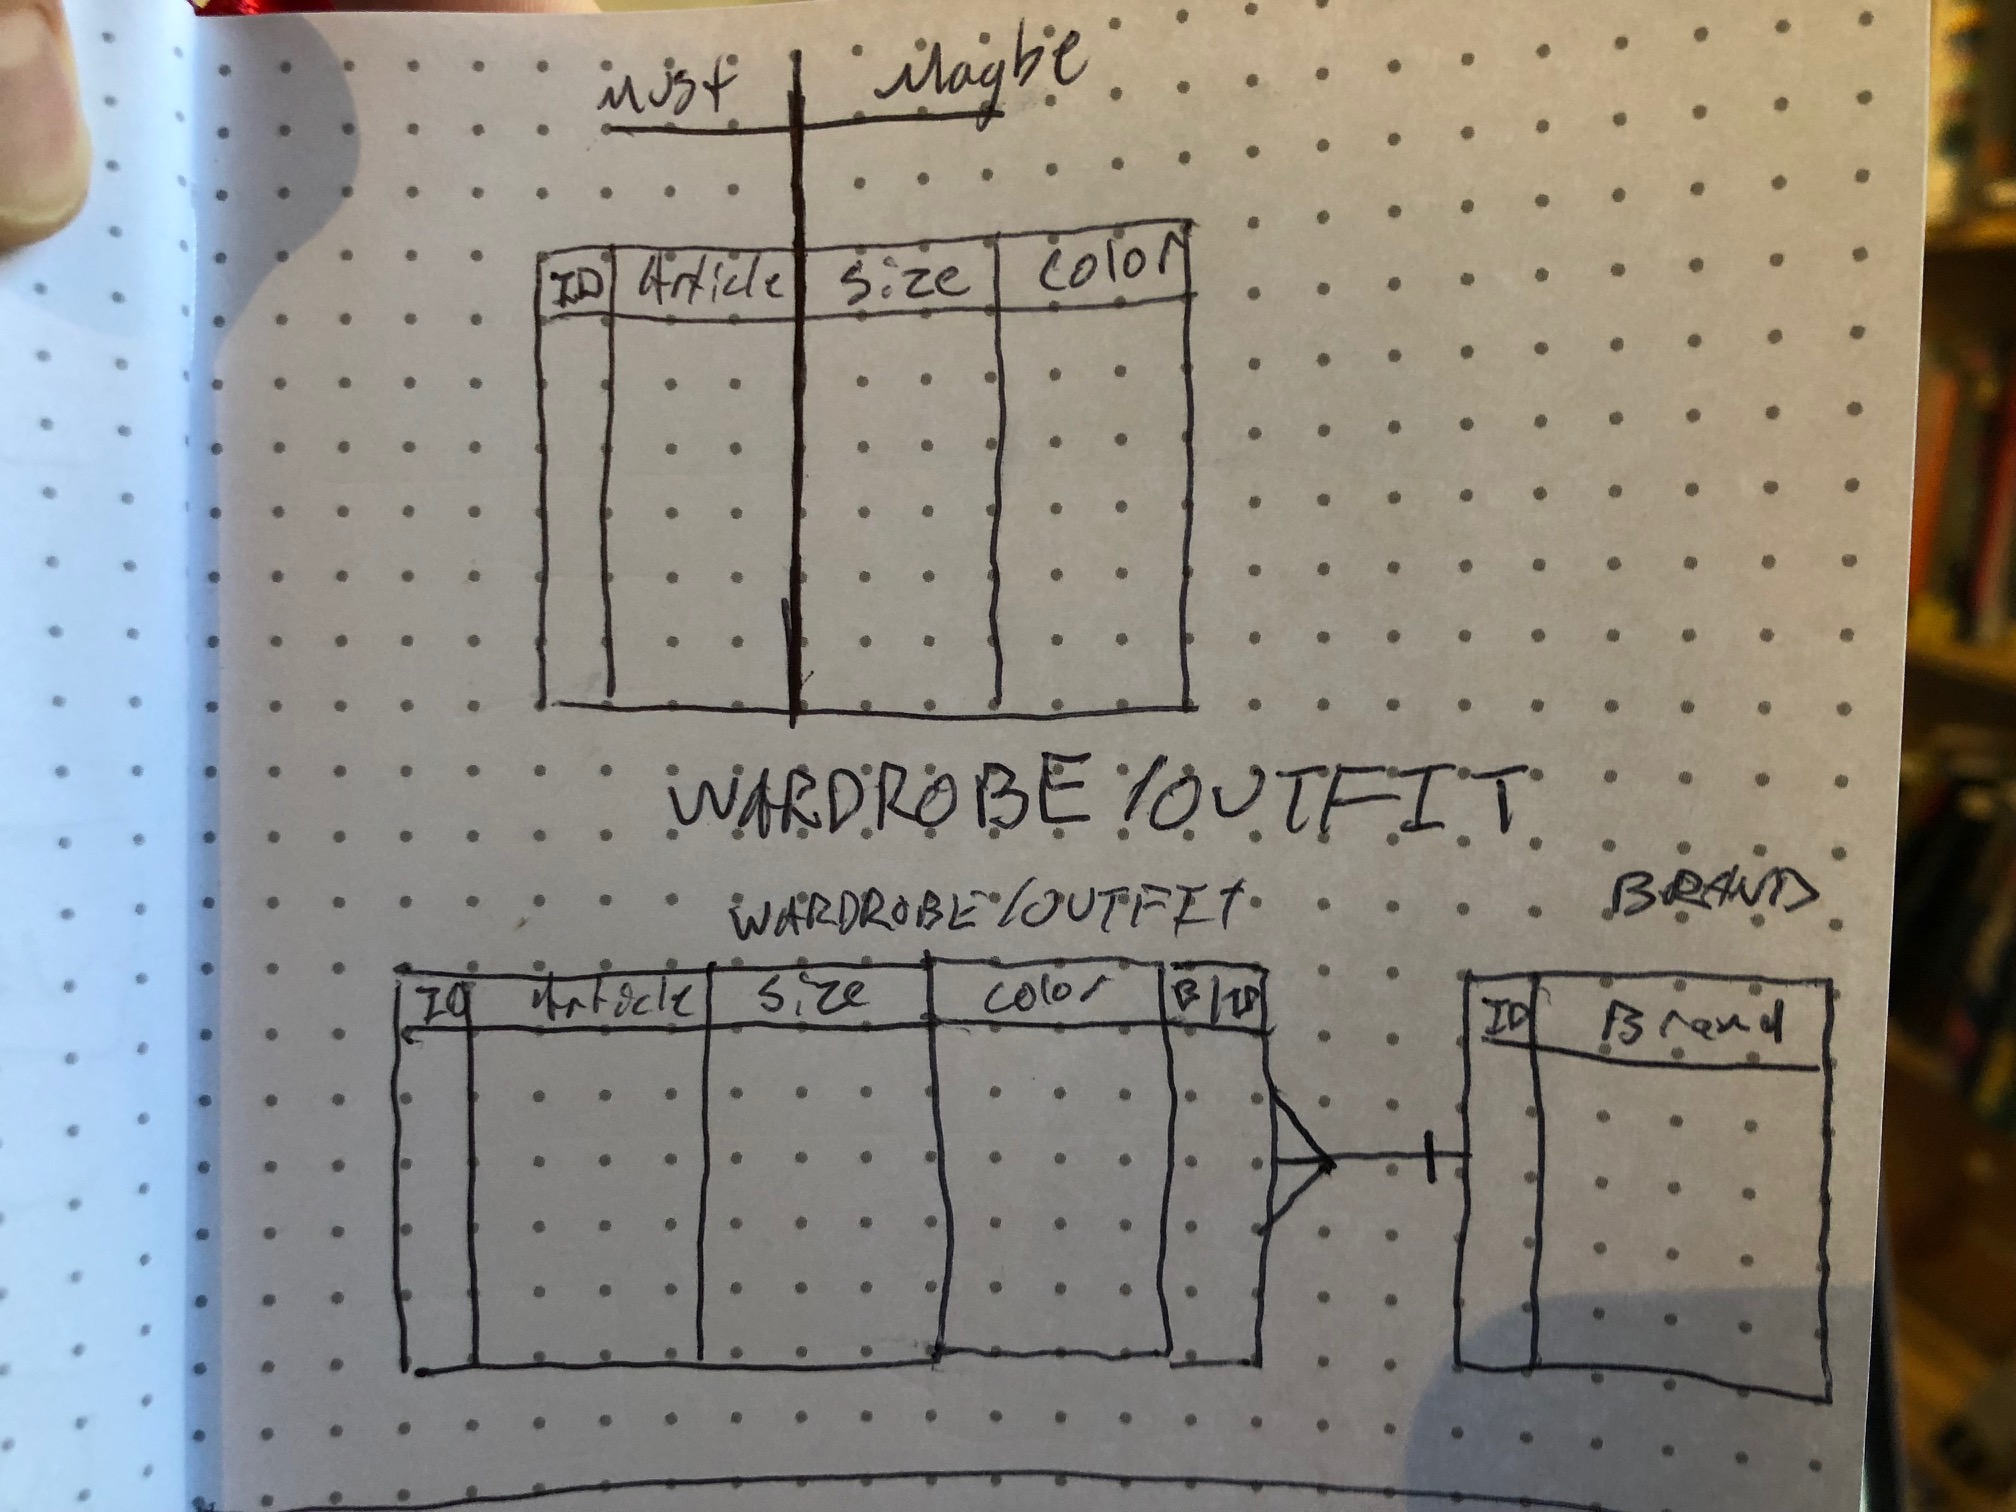 Must Maybe
ID Article Size Color
WARDROBE/OUTFIT
WARDROBE/OUTFIT BRAND
ID Article Size Color B/ID ID Brand